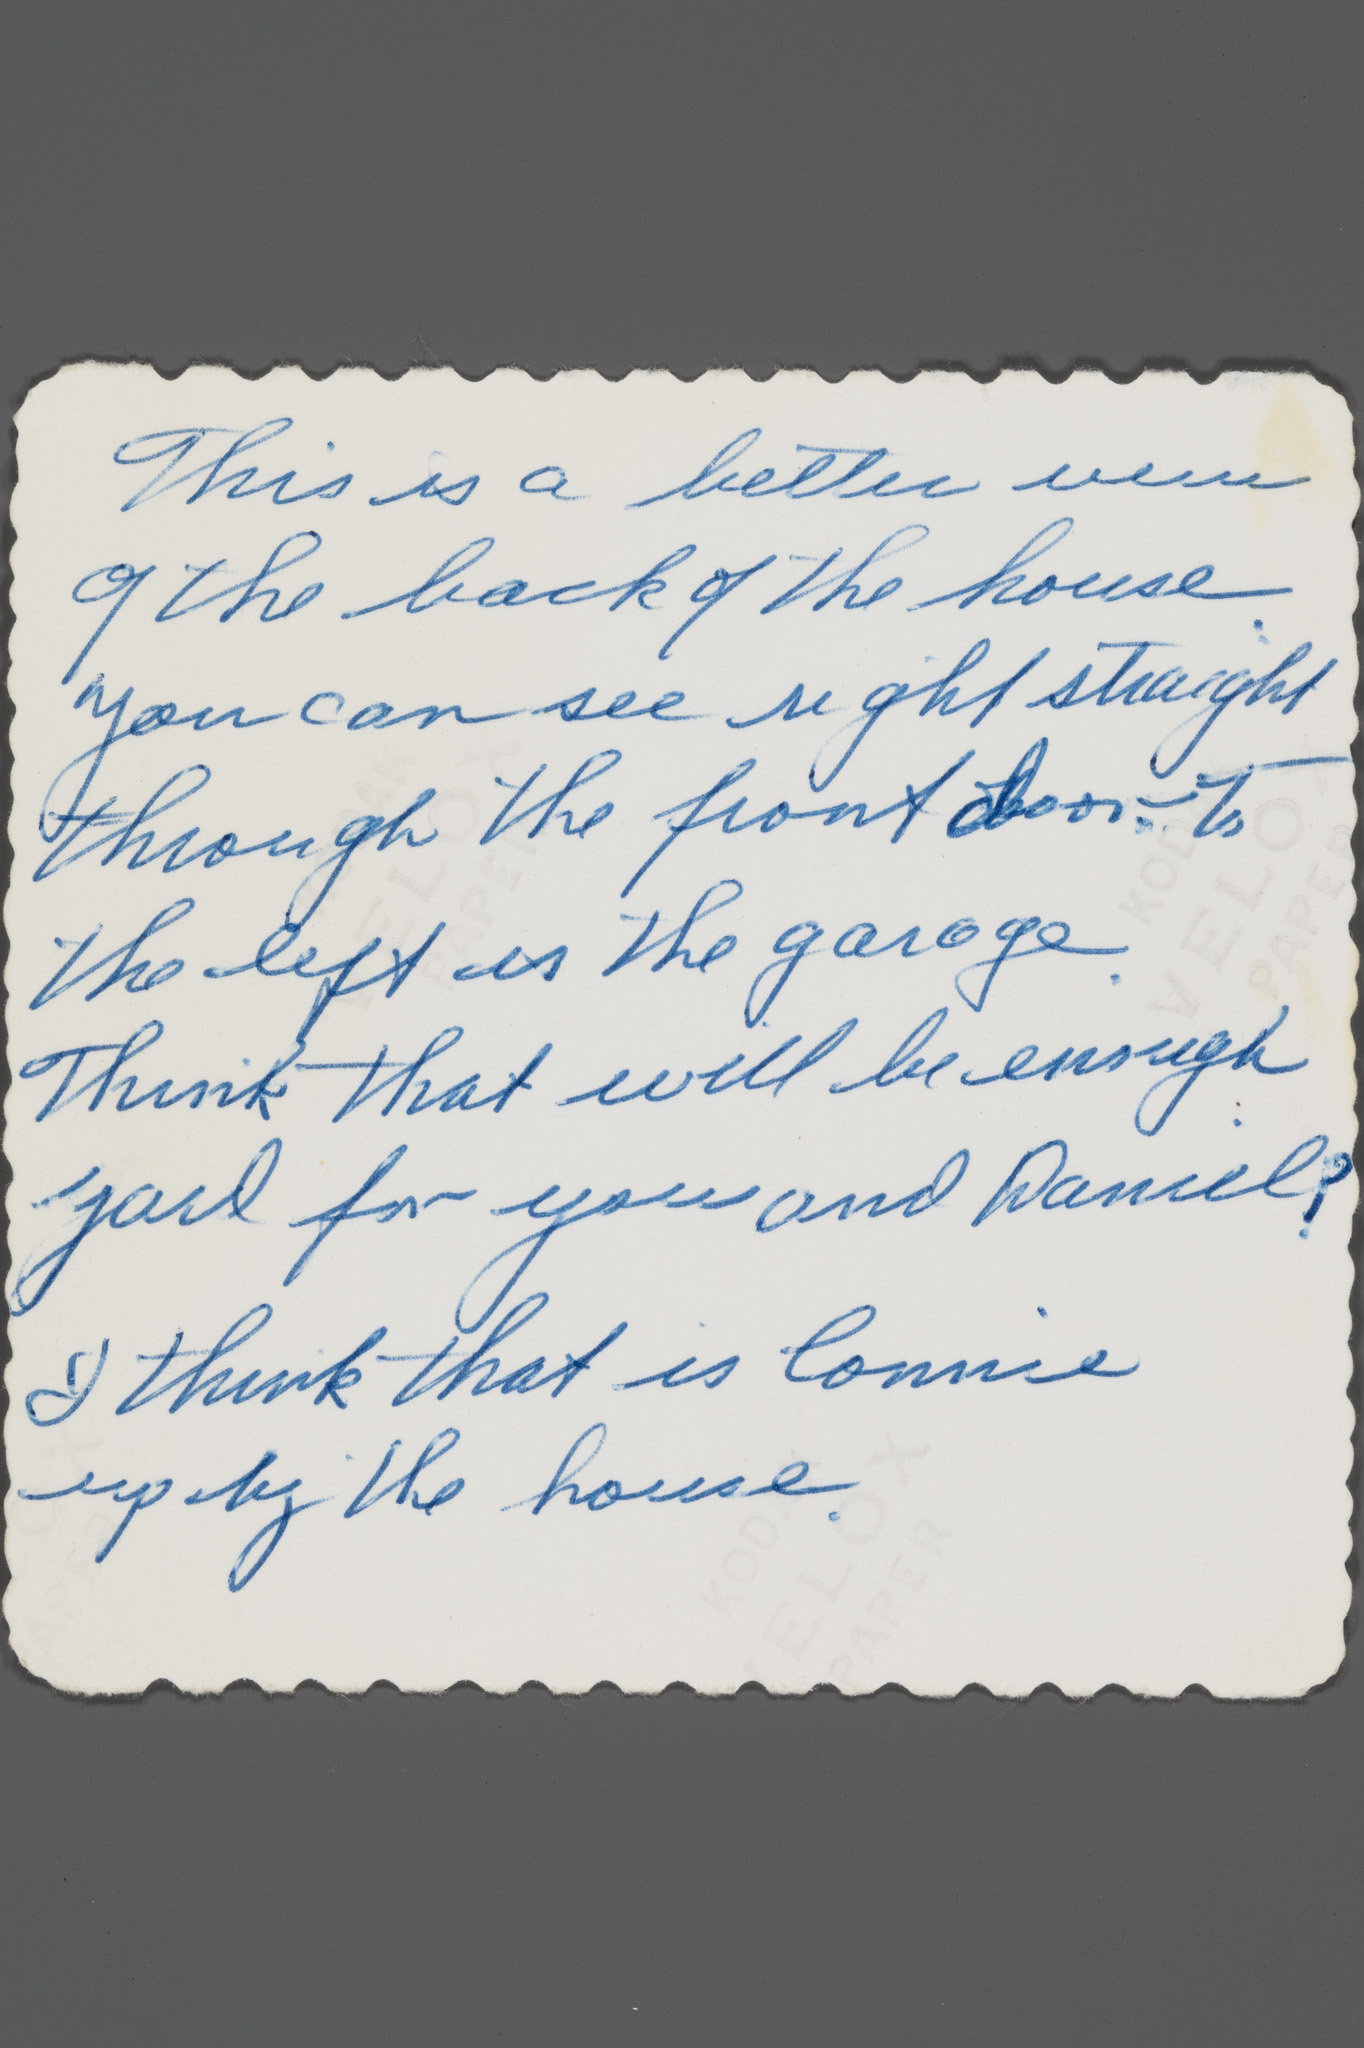 This is a better view
of the back of the house.
You can see right straight
through the front door - to
the left is the garage.
Think that will be enough
yard for you and Daniel?
I think that is Connie
up by the house.
KODAK
VELOX
PAPER
KODAK
VELOX
PAPER
KODAK
VELOX
PAPER